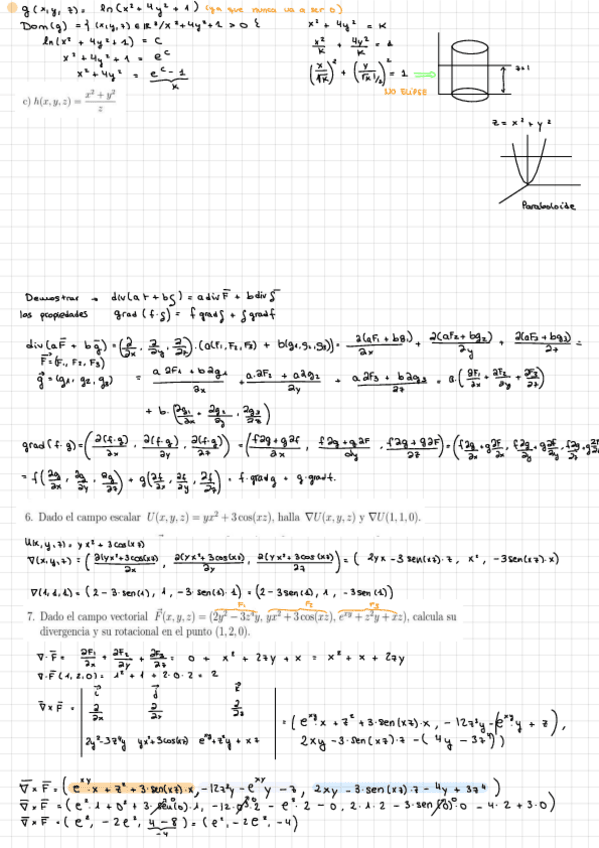 g(x,y,z) = ln(x²+4y²+1) (ya que nunca va a ser 0)
Dom(g) = {(x,y,z) ∈ ℝ³/x²+4y²+1 > 0}
ln(x²+4y²+1) = C
x²+4y²+1 = e^C
x²+4y² = e^C - 1
K
x²+4y² = K
x²/K + 4y²/K = 1
(x/√K)² + (y/(√K/2))² = 1
UNO ELIPSE
c) h(x,y,z) = (x²+y²)/z
z = x²+y²
Paraboloide
Demostrar → div(aF + bg) = a div F + b div g
las propiedades grad(f·g) = f grad g + g grad f
div(aF + bg) = (∂/∂x, ∂/∂y, ∂/∂z)·(a(F₁,F₂,F₃) + b(g₁,g₂,g₃)) = ∂(aF₁+bg₁)/∂x + ∂(aF₂+bg₂)/∂y + ∂(aF₃+bg₃)/∂z =
F = (F₁,F₂,F₃)
g = (g₁,g₂,g₃) = (a∂F₁+b∂g₁)/∂x + (a·∂F₂+a∂g₂)/∂y + (a∂F₃+b∂g₃)/∂z = a·(∂F₁/∂x + ∂F₂/∂y + ∂F₃/∂z)
+ b·(∂g₁/∂x + ∂g₂/∂y + ∂g₃/∂z)
grad(f·g) = (∂(f·g)/∂x, ∂(f·g)/∂y, ∂(f·g)/∂z) = ((f∂g+g∂f)/∂x, (f∂g+g∂f)/∂y, (f∂g+g∂f)/∂z) = (f∂g/∂x + g∂f/∂x, f∂g/∂y + g∂f/∂y, f∂g/∂z + g∂f/∂z)
= f(∂g/∂x, ∂g/∂y, ∂g/∂z) + g(∂f/∂x, ∂f/∂y, ∂f/∂z) = f·grad g + g·grad f.
6. Dado el campo escalar U(x,y,z) = yx² + 3cos(xz), halla ∇U(x,y,z) y ∇U(1,1,0).
U(x,y,z) = yx²+3cos(xz)
∇(x,y,z) = (∂(yx²+3cos(xz))/∂x, ∂(yx²+3cos(xz))/∂y, ∂(yx²+3cos(xz))/∂z) = (2yx - 3sen(xz)·z, x², -3sen(xz)·x)
∇(1,1,1) = (2-3·sen(1), 1, -3·sen(1)·1) = (2-3sen(1), 1, -3sen(1))
F₁ F₂ F₃
7. Dado el campo vectorial F(x,y,z) = (2y² − 3z⁴y, yx² + 3cos(xz), e^xy + z²y + xz), calcula su
divergencia y su rotacional en el punto (1,2,0).
∇·F = ∂F₁/∂x + ∂F₂/∂y + ∂F₃/∂z = 0 + x² + 2zy + x = x² + x + 2zy
∇·F(1,2,0) = 1² + 1 + 2·0·2 = 2
i j k
∇×F = | ∂/∂x ∂/∂y ∂/∂z | = (e^xy·x + z² + 3·sen(xz)·x, -12z³y - (e^xy·y + z),
2y²-3z⁴y yx²+3cos(xz) e^xy+z²y+xz 2xy - 3·sen(xz)·z - (4y - 3z⁴))
∇×F = (e^xy·x + z² + 3·sen(xz)·x, -12z³y - e^xy·y - z, 2xy - 3·sen(xz)·z - 4y + 3z⁴)
∇×F = (e²·1 + 0² + 3·sen(0)·1, -12·0³·2 - e²·2 - 0, 2·1·2 - 3·sen(0)·0 - 4·2 + 3·0)
∇×F = (e², -2e², 4-8) = (e², -2e², -4)
-4